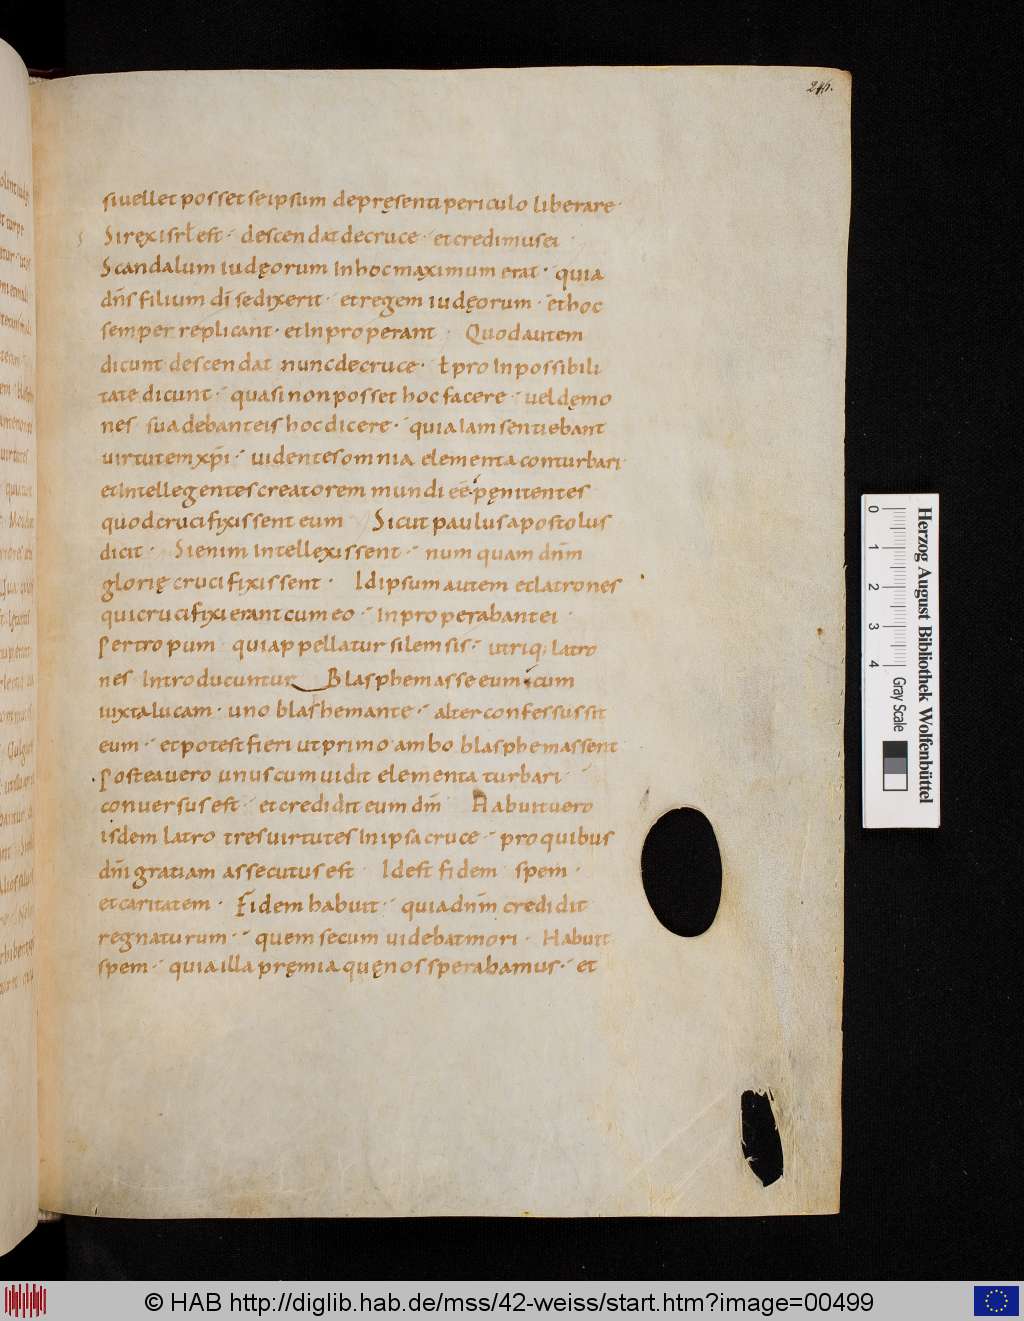 246.
siuellet posset seipsum depręsenti periculo liberare·
Si rex isrł est· descendat decruce· et credimus ei
Scandalum iudęorum Inhoc maximum erat· quia
dn̄s filium dī sedixerit· et regem iudęorum· et hoc
semper replicant· et Inproperant· Quod autem
dicunt descendat nunc decruce· ł pro Inpossibili
tate dicunt· quasi non posset hoc facere· uel dęmo
nes suadebant eis hoc dicere· quia Iam sentiebant
uirtutem xp̄i· uidentes omnia elementa conturbari·
et Intellegentes creatorem mundi eē· pęnitentes
quod crucifixissent eum Sicut paulus apostolus
dicit· Si enim Intellexissent· num quam dn̄m
glorię crucifixissent· Id ipsum autem et latrones
qui crucifixi erant cum eo· Inproperabant ei·
Per tropum quia ppellatur silemsis· utriq; latro
nes Introducuntur Blasphemasse eum· cum
iuxta lucam· uno blasfemante· alter confessus sit
eum· et potest fieri ut primo ambo blasphemassent
Postea uero unus cum uidit elementa turbari·
conuersus est· et credidit eum dm̄ Habuit uero
isdem latro tres uirtutes In ipsa cruce· pro quibus
dn̄i gratiam assecutus est Id est fidem spem·
et caritatem· Fidem habuit· quia dn̄m credidit
regnaturum· quem secum uidebat mori· Habuit
spem· quia illa pręmia quę nos sperabamus· et
Herzog August Bibliothek Wolfenbüttel
0 1 2 3 4
Gray Scale
© HAB http://diglib.hab.de/mss/42-weiss/start.htm?image=00499